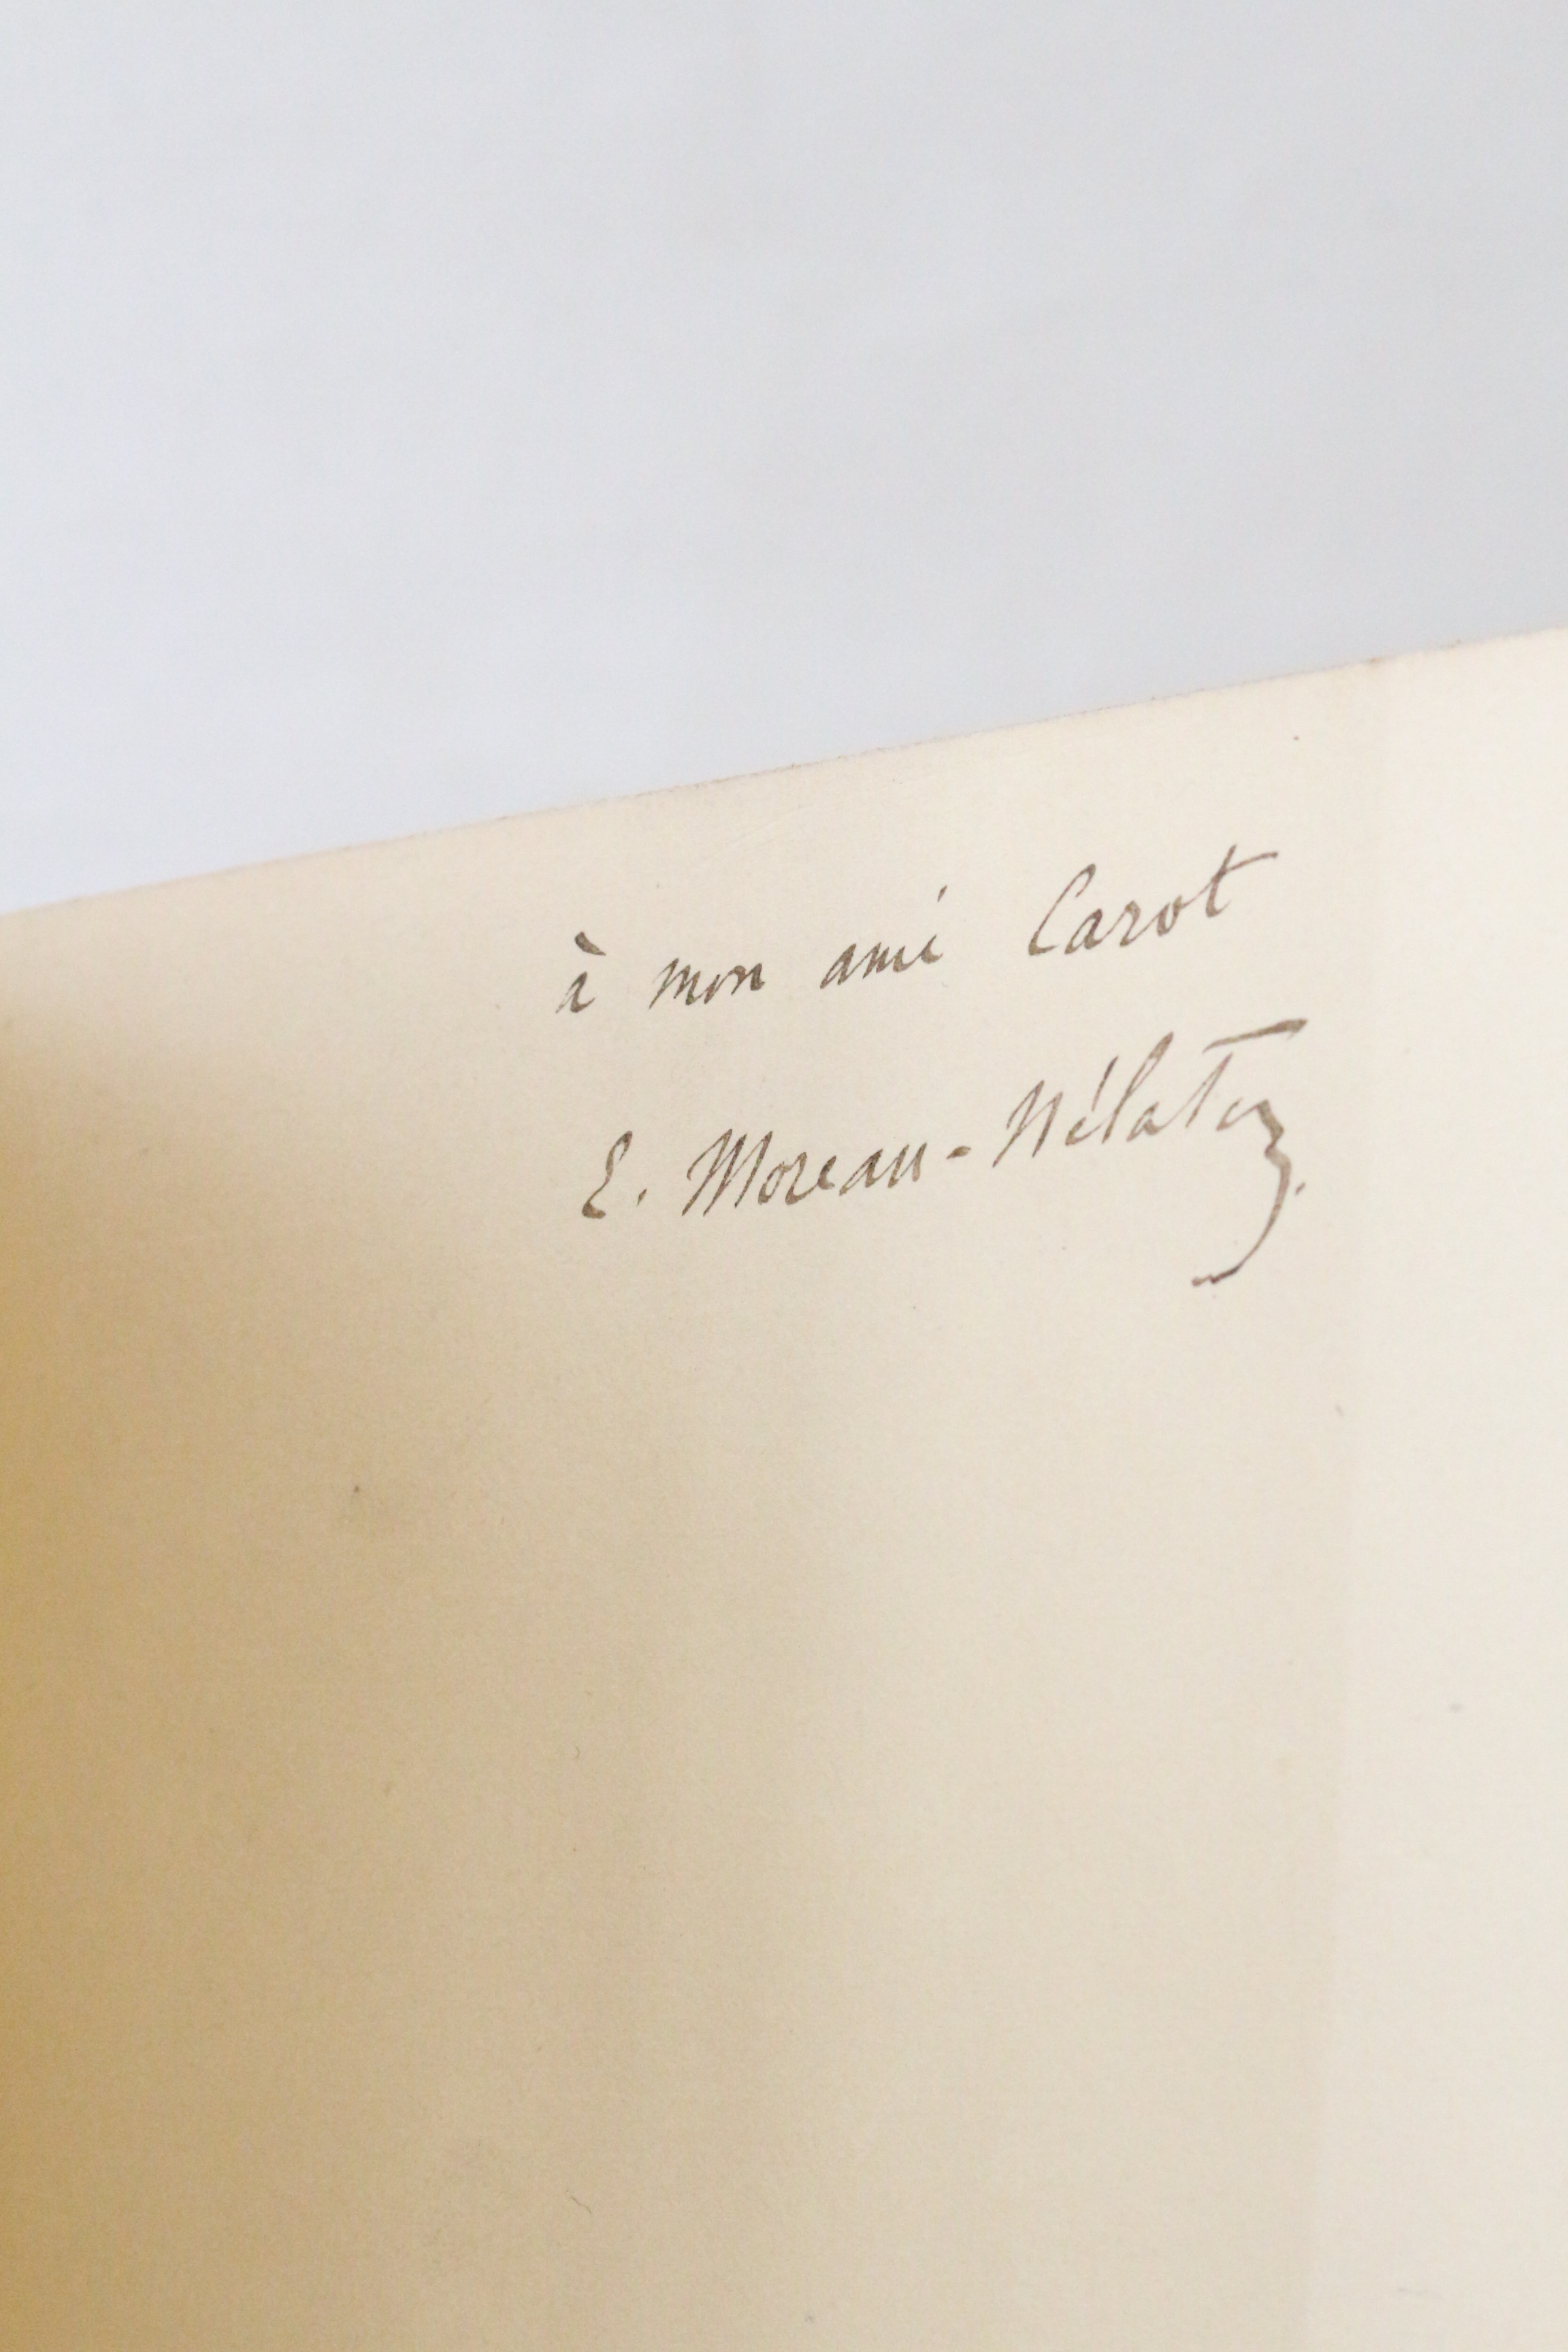 à mon ami Carot
E. Moreau-Nélaton